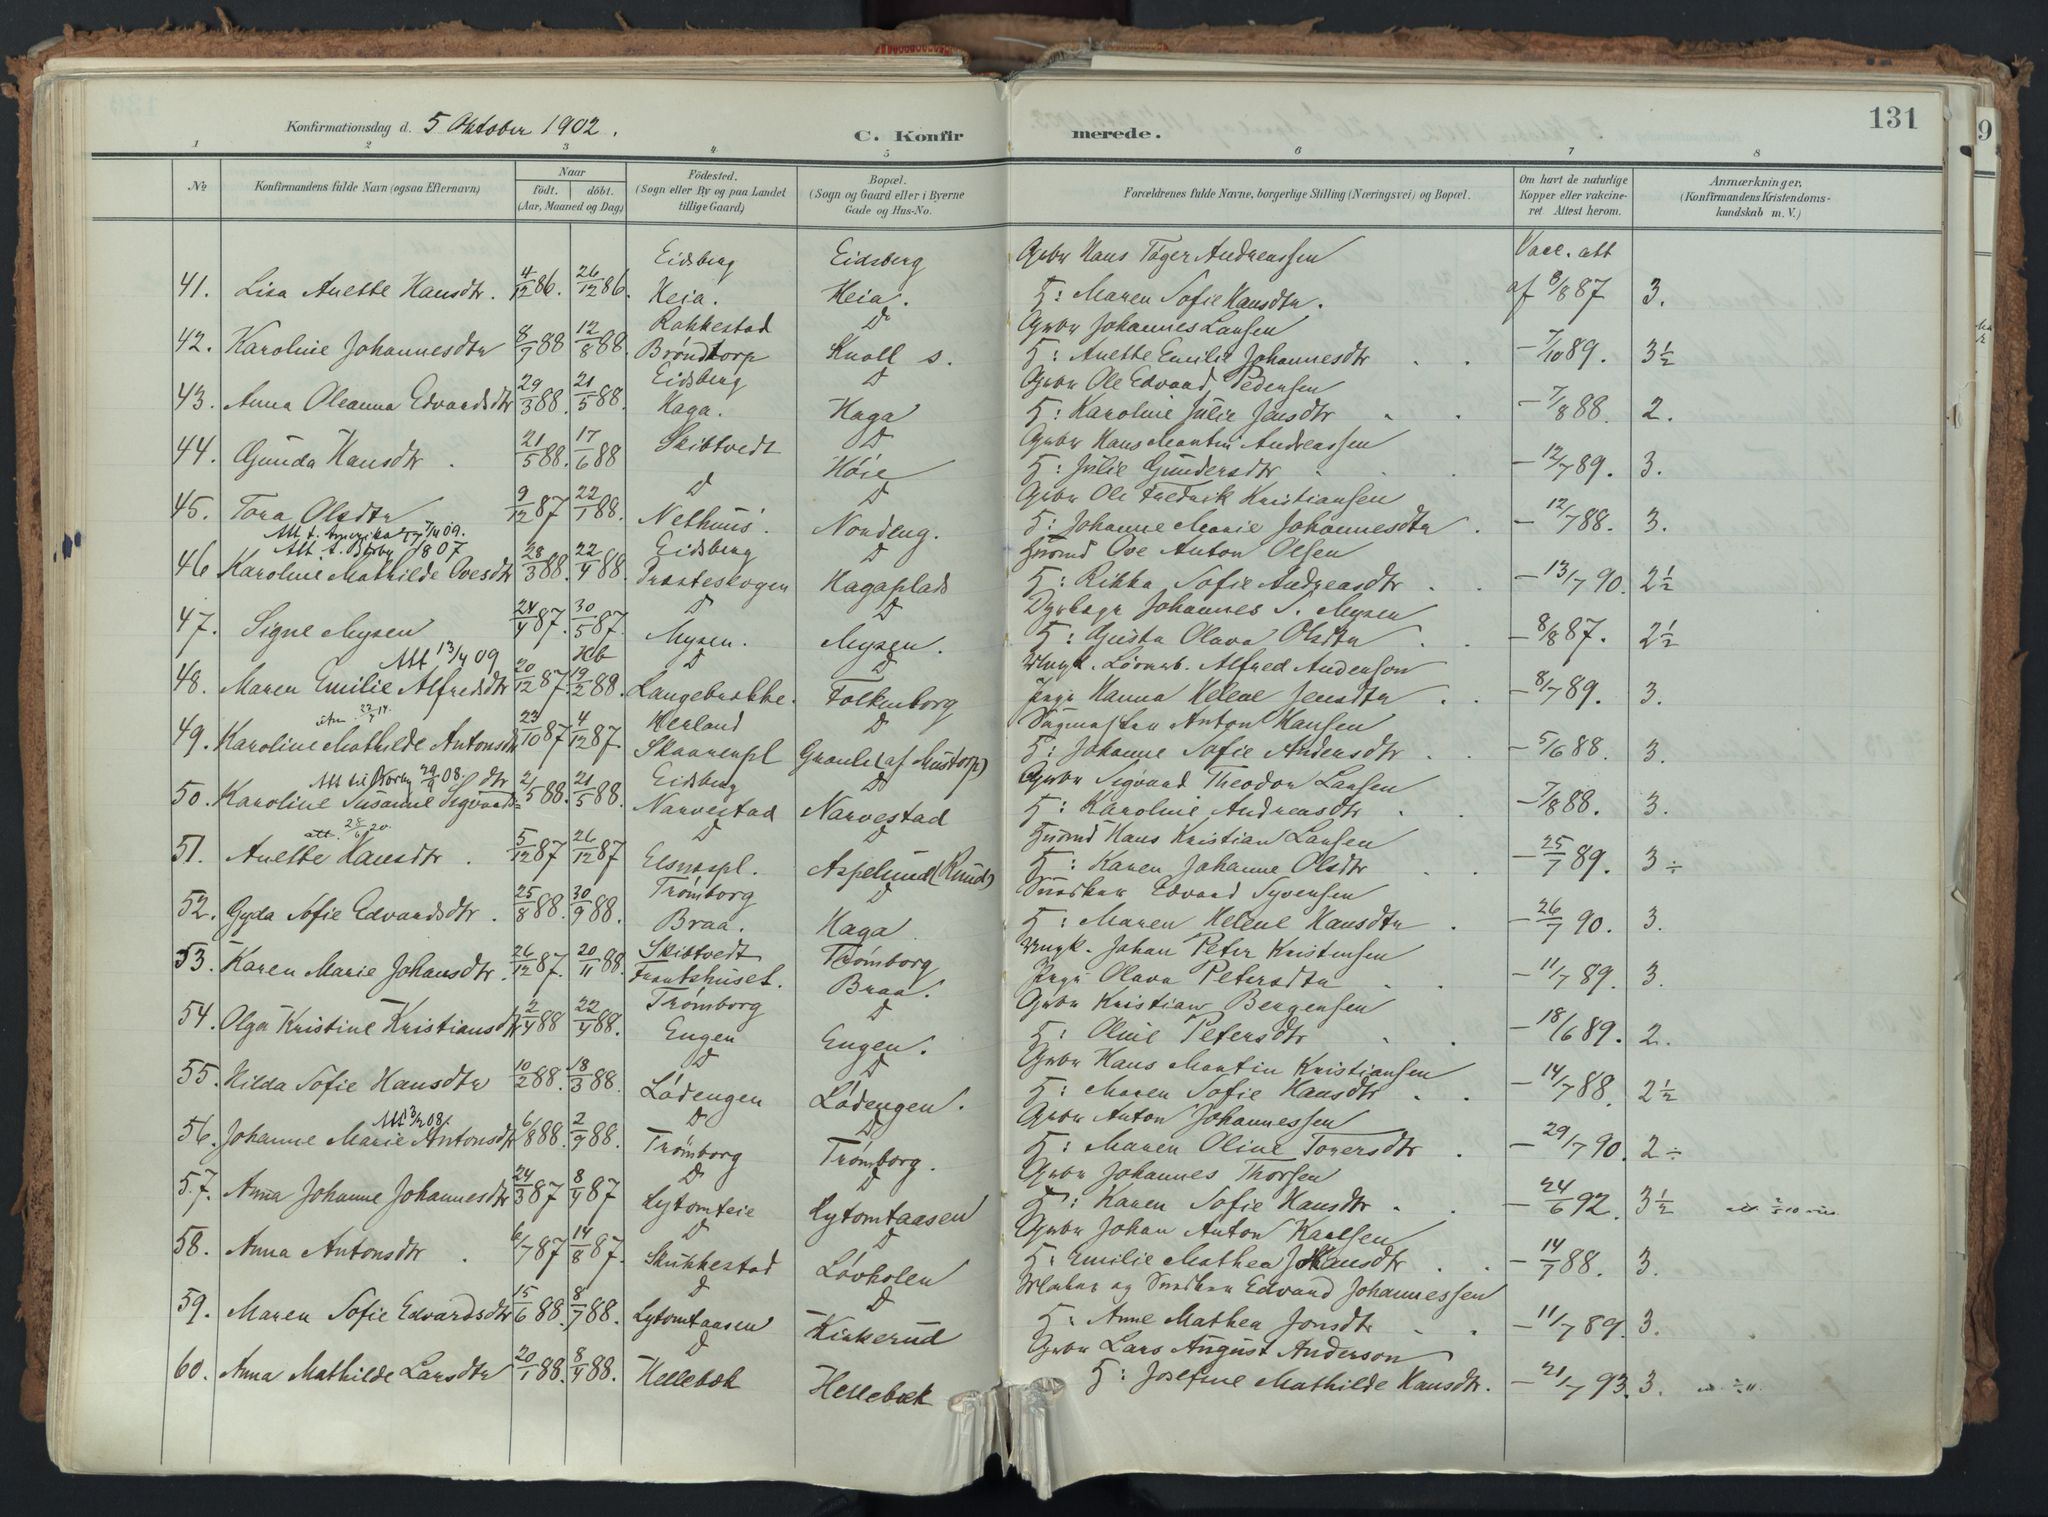 131
Konfirmationsdag d. 5 Oktober 1902.
C. Konfir merede.
1 2 3 4 5 6 7 8
No
Konfirmandens fulde Navn (ogsaa Efternavn)
Naar
födt. döbt.
(Aar, Maaned og Dag)
Födested.
(Sogn eller By og paa Landet
tillige Gaard)
Bopæl.
(Sogn og Gaard eller i Byerne
Gade og Hus-No.
Forældrenes fulde Navne, borgerlige Stilling (Næringsvei) og Bopæl.
Om havt de naturlige
Kopper eller vakcine-
ret Attest herom.
Anmærkninger.
(Konfirmandens Kristendoms-
kundskab m. V.)
Eidsberg Eidsberg Grbr Hans Tøger Andreassen Vacc. att
41. Lisa Anette Hansdtr. 4/12 86. 26/12 86. Heia. Heia. H: Maren Sofie Hansdtr. af 8/8 87 3.
Rakkestad D Grbr Johannes Larsen
42. Karoline Johannesdtr 8/7 88 12/8 88. Brøndtorp Knoll s. H: Anette Emilie Johannesdtr – 7/10 89. 3½
Eidsberg D Grbr Ole Edvard Pedersen
43. Anna Oleanna Edvardsdtr 29/3 88. 21/5 88. Haga. Haga H: Karoline Julie Jensdtr – 7/8 88. 2.
Skibtvedt D Grbr Hans Martin Andreassen
44. Gunda Hansdtr. 21/5 88. 17/6 88 Høie H: Julie Gundersdtr – 12/7 89. 3.
D D Grbr Ole Fredrik Kristiansen
45. Tora Olsdtr 9/12 87 22/1 88. Nethuus. Nordeng. H: Johanne Marie Johannesdtr. – 12/7 88. 3.
Att t. Amerika 7/4 09.
Att. t. Børby 807
Eidsberg D Husmd Ove Anton Olsen
46 Karoline Mathilde Ovesdtr 28/3 88. 22/4 88. Præsteskogen Hagaplads H: Rikka Sofie Andreasdtr – 13/7 90. 2½
D D Dyrlæge Johannes S. Mysen
47. Signe Mysen 24/4 87. 30/5 87. Mysen. Mysen. H: Gusta Olava Olsdtr – 8/8 87. 2½
Att 13/4 09 Hb D D Ungk. Alfred Anderson
48. Maren Emilie Alfredsdtr 20/12 87. 19/2 88. Langebrække. Folkenborg Pige Hanna Helene Jensdtr – 8/7 89. 3.
Herland D Sagmester Anton Hansen
49. Karoline Mathilde Antonsdtr 23/10 87 4/12 87 Skaarenpl Granli (af Mustorp) H: Johanne Sofie Andersdtr – 5/6 88. 3.
Att til Børby 29/9 08. Eidsberg D Grbr Sigvard Theodor Larsen
50. Karoline Susanne Sigvards=dtr 2/5 88. 21/5 88. Narvestad Narvestad H: Karoline Andreasdtr – 7/8 88. 3.
att. 28/6 20. D D Husmd Hans Kristian Larsen
51. Anette Hansdtr. 5/12 87 26/12 87 Aspelund (Rud) H: Karen Johanne Olsdtr – 25/7 89. 3÷
Trømborg D Snedker Edvard Syvensen
52. Gyda Sofie Edvardsdtr. 25/8 88. 30/9 88. Braa. Haga H: Maren Helene Hansdtr – 26/7 90. 3.
Skibtvedt Trømborg Ungk. Johan Peter Kristensen
53. Karen Marie Johansdtr. 26/12 87. 20/11 88. Braa. Pige Olava Petersdtr – 11/7 89. 3.
Trømborg D Grbr Kristian Bergersen
54. Olga Kristine Kristiansdtr 2/4 88 22/4 88. Engen Engen. H: Oline Petersdtr – 18/6 89. 2.
D D Grbr Hans Martin Kristiansen
55. Hilda Sofie Hansdtr 10/2 88. 18/3 88. Lødengen Lødengen. H: Maren Sofie Hansdtr – 14/7 88. 2½
D D Grbr Anton Johannessen
56. Johanne Marie Antonsdtr 6/8 88. 2/9 88. Trømborg Trømborg. H: Maren Oline Torersdtr. – 29/7 90. 2÷
D D Grbr Johannes Thorsen
57. Anna Johanne Johannesdtr 24/3 87 8/4 87 Lytomteie Lytomtaasen H: Karen Sofie Hansdtr – 24/6 92. 3½
D D Grbr Johan Anton Karlsen
58. Anna Antonsdtr 6/7 87 14/8 87. Skukkestad Løvholen H: Emilie Mathea Johansdtr – 14/7 88. 3.
D D Maler og Snedker Edvard Johannessen
59. Maren Sofie Edvardsdtr 15/6 88. 8/7 88. Lytomtaasen Kirkerud H: Anne Mathea Jonsdtr – 11/7 89. 3.
D Grbr Lars August Anderson
60. Anna Mathilde Larsdtr 20/1 88. 8/4 88. Hellebæk Hellebæk H: Josefine Mathilde Hansdtr. – 21/7 93. 3.